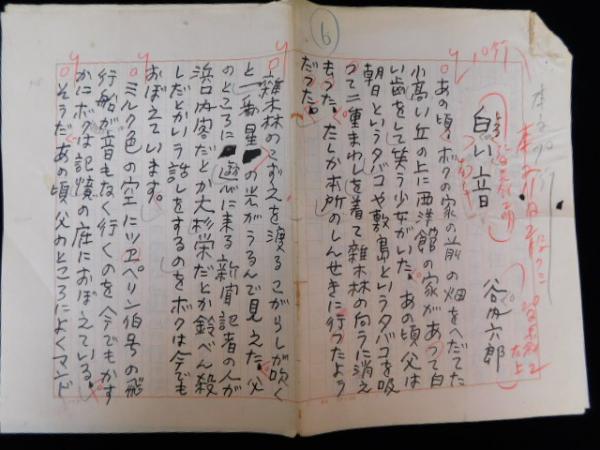 6
白い音
谷内六郎
あの頃、ボクの家の前の畑をへだてた
小高い丘の上に西洋館の家があって白
い歯をして笑う少女がいた。あの頃父は
朝日というタバコや敷島というタバコを吸
って二重まわしを着て雑木林の向うに消え
去った。たしか本所のしんせきに行ったよう
だった。
雑木林のこずえを渡るこがらしが吹く
と一番星の光がうるんで見えた。父
のところに遊びに来る新聞記者の人が
浜口内客だとか大杉栄だとか鈴べん殺
しだとかいう話しをするのをボクは今でも
おぼえています。
ミルク色の空にツェペリン伯号の飛
行船が音もなく行くのを今でもかす
かにボクは記憶の底におぼえている。
そうだあの頃父のところによくマンド